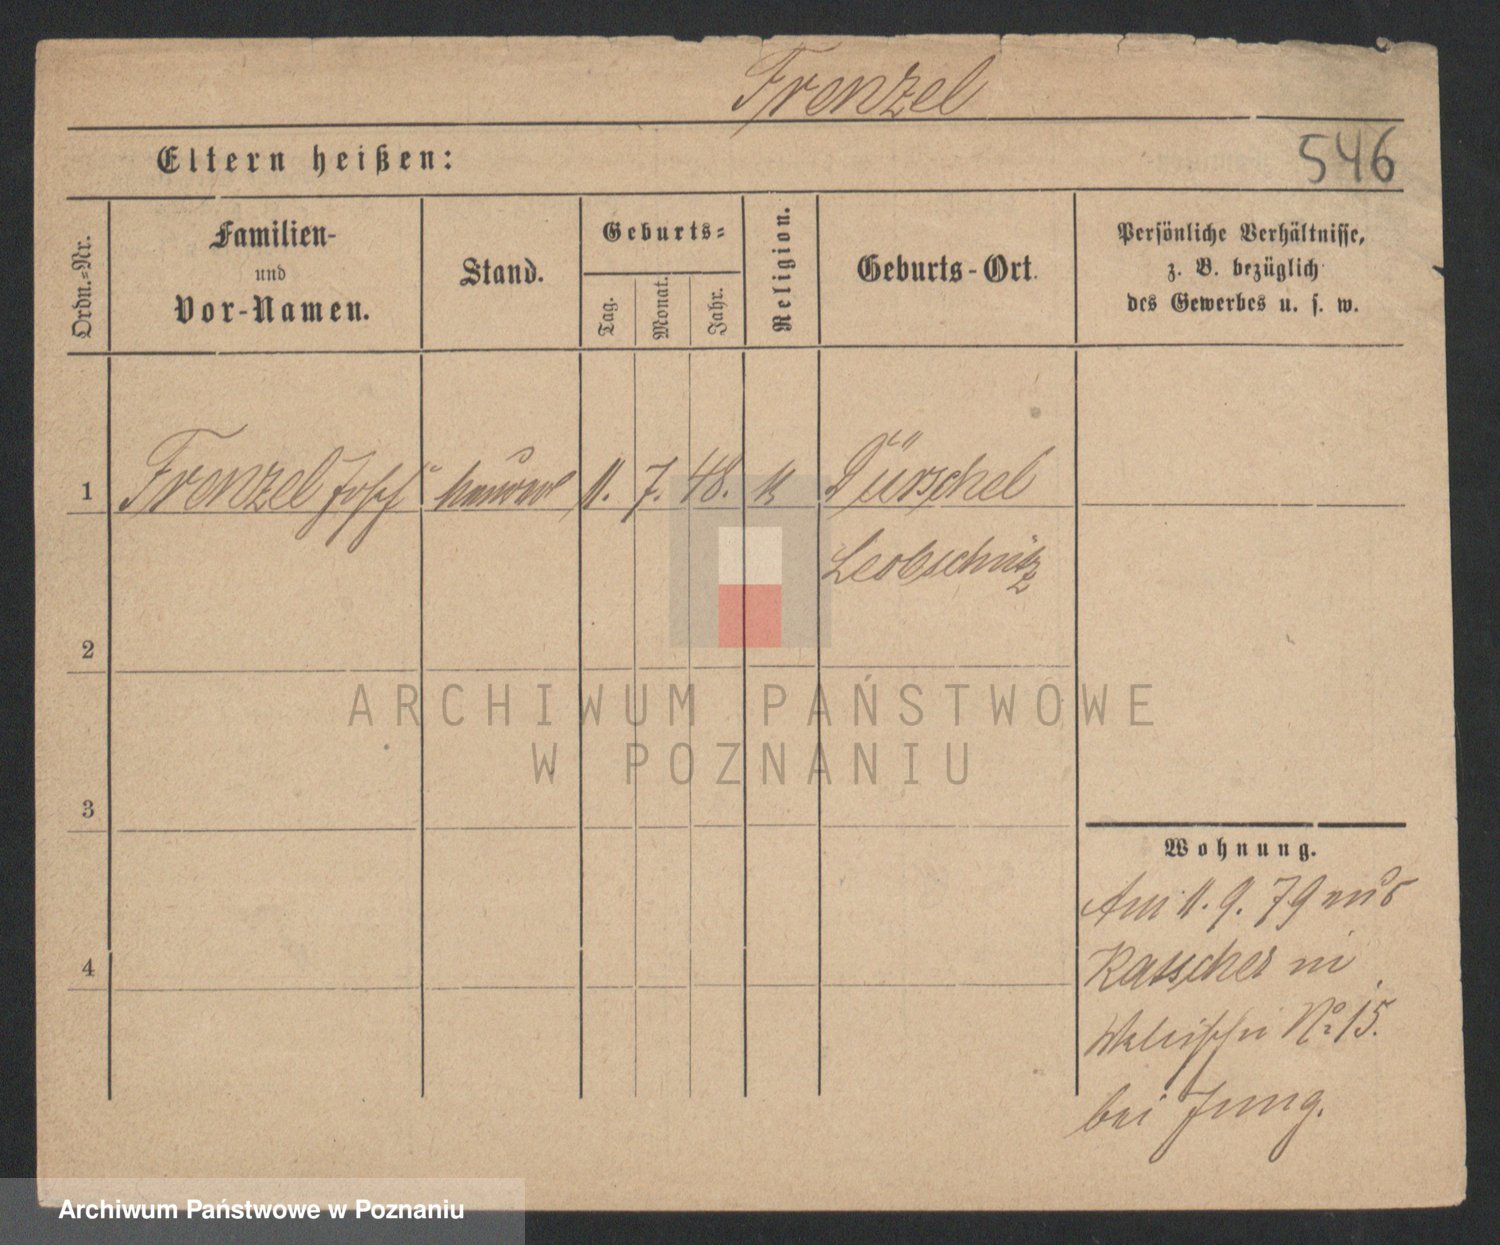 Frenzel
546
Eltern heißen:
Ordn.-Nr.
Familien-
und
Vor-Namen.
Stand.
Geburts-
Tag.
Monat.
Jahr.
Religion.
Geburts-Ort.
Persönliche Verhältnisse,
z. B. bezüglich
des Gewerbes u. s. w.
1 Frenzel Josef 11. 7. 48. k Dürschel
Leobschütz
2
3
4
Wohnung.
Am 11. 9. 79 aus
Katscher in
Wallischei No 15.
bei Jung.
ARCHIWUM PAŃSTWOWE
W POZNANIU
Archiwum Państwowe w Poznaniu